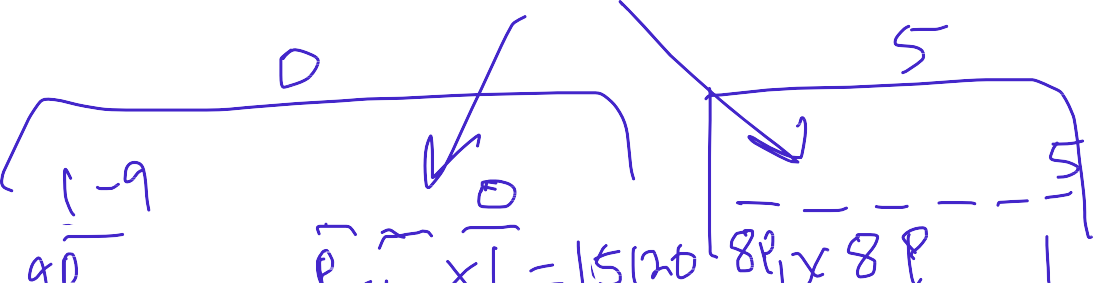 0 5
1-9 0 5
9P P x1 = 15120 8P₁ x 8P 1